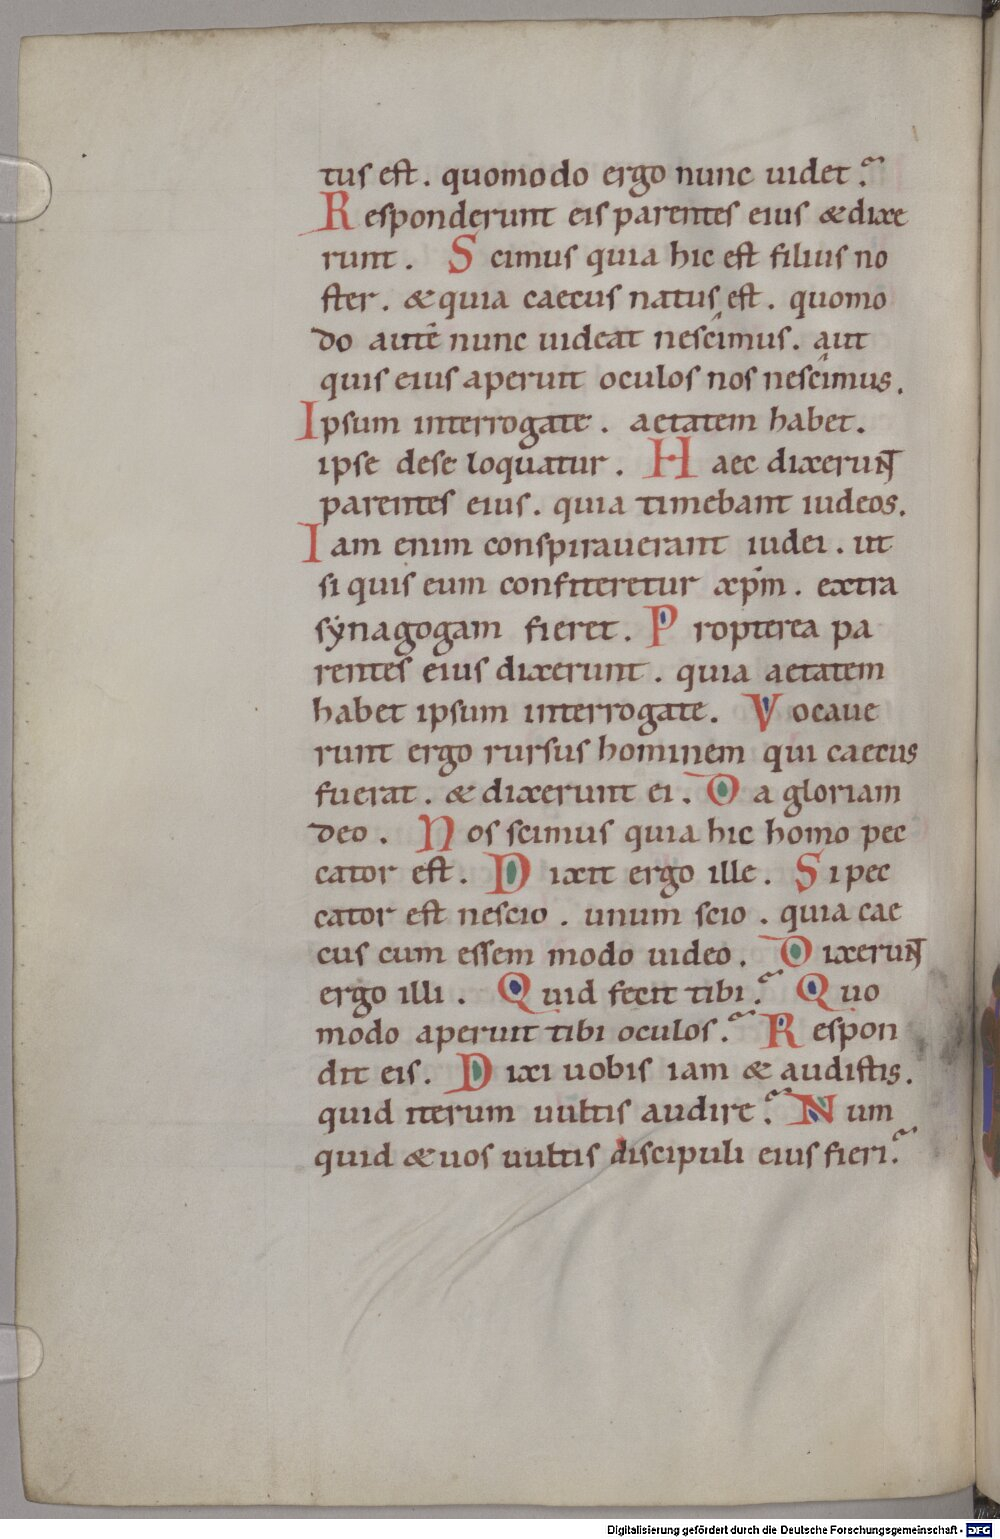 tus est. quomodo ergo nunc uidet?
Responderunt eis parentes eius & dixe
runt. Scimus quia hic est filius no
ster. & quia caecus natus est. quomo
do autē nunc uideat nescimus. aut
quis eius aperuit oculos nos nescimus.
Ipsum interrogate. aetatem habet.
ipse dese loquatur. Haec dixerunt
parentes eius. quia timebant iudeos.
Iam enim conspirauerant iudei. ut
si quis eum confiteretur xp̄m. extra
synagogam fieret. Propterea pa
rentes eius dixerunt. quia aetatem
habet ipsum interrogate. Vocaue
runt ergo rursus hominem qui caecus
fuerat. & dixerunt ei. Da gloriam
deo. Nos scimus quia hic homo pec
cator est. Dixit ergo ille. Si pec
cator est nescio. unum scio. quia cae
cus cum essem modo uideo. Dixerunt
ergo illi. Quid fecit tibi? Quo
modo aperuit tibi oculos? Respon
dit eis. Dixi uobis iam & audistis.
quid iterum uultis audire? Num
quid & uos uultis discipuli eius fieri?
Digitalisierung gefördert durch die Deutsche Forschungsgemeinschaft - DFG